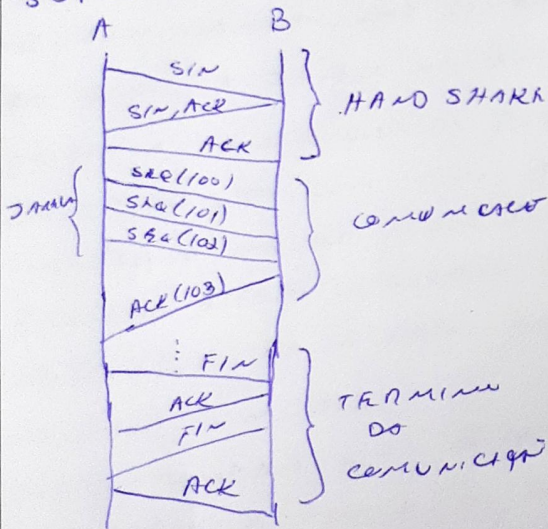 A
B
SIN
SIN, ACK
ACK
HAND SHAKE
SEQ(100)
SEQ(101)
SEQ(102)
JANELA
COMUNICAÇÃO
ACK(103)
FIN
ACK
FIN
ACK
TERMINO
DO
COMUNICAÇÃO